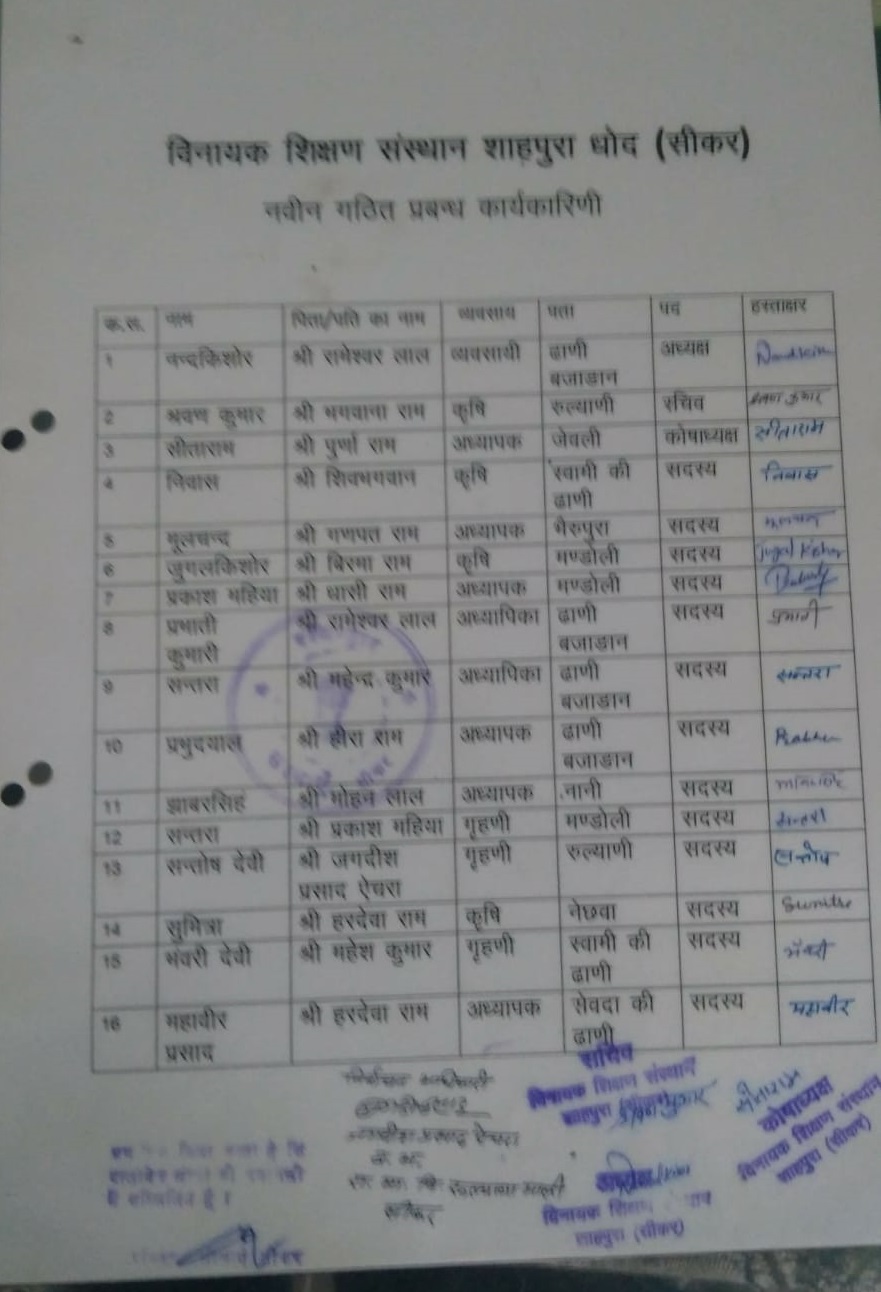 विनायक शिक्षण संस्थान शाहपुरा धोद (सीकर)
नवीन गठित प्रबन्ध कार्यकारिणी
क.स. नाम पिता/पति का नाम व्यवसाय पता पद हस्ताक्षर
1 नन्दकिशोर श्री रामेश्वर लाल व्यवसायी ढाणी अध्यक्ष
बजाडान
2 श्रवण कुमार श्री भगवाना राम कृषि रुल्याणी सचिव श्रवण कुमार
3 सीताराम श्री पुर्णा राम अध्यापक जेवली कोषाध्यक्ष सीताराम
4 निवास श्री शिवभगवान कृषि स्वामी की सदस्य निवास
ढाणी
5 मूलचन्द श्री गणपत राम अध्यापक भैरुपुरा सदस्य मूलचन्द
6 जुगलकिशोर श्री बिरमा राम कृषि मण्डोली सदस्य
7 प्रकाश महिया श्री घासी राम अध्यापक मण्डोली सदस्य
8 प्रभाती श्री रामेश्वर लाल अध्यापिका ढाणी सदस्य प्रभाती
कुमारी बजाडान
9 सन्तरा श्री महेन्द्र कुमार अध्यापिका ढाणी सदस्य सन्तरा
बजाडान
10 प्रभुदयाल श्री हीरा राम अध्यापक ढाणी सदस्य
बजाडान
11 झाबरसिह श्री मोहन लाल अध्यापक नानी सदस्य
12 सन्तरा श्री प्रकाश महिया गृहणी मण्डोली सदस्य सन्तरा
13 सन्तोष देवी श्री जगदीश गृहणी रुल्याणी सदस्य सन्तोष
प्रसाद ऐचरा
14 सुमित्रा श्री हरदेवा राम कृषि नेछवा सदस्य
15 भंवरी देवी श्री महेश कुमार गृहणी स्वामी की सदस्य भंवरी
ढाणी
16 महावीर श्री हरदेवा राम अध्यापक सेवदा की सदस्य महावीर
प्रसाद ढाणी
निर्वाचन अधिकारी
जगदीश प्रसाद ऐचरा
सीकर
सचिव
विनायक शिक्षण संस्थान
शाहपुरा (सीकर)
श्रवण कुमार
सीताराम
कोषाध्यक्ष
विनायक शिक्षण संस्थान
शाहपुरा (सीकर)
अध्यक्ष
विनायक शिक्षण
शाहपुरा (सीकर)